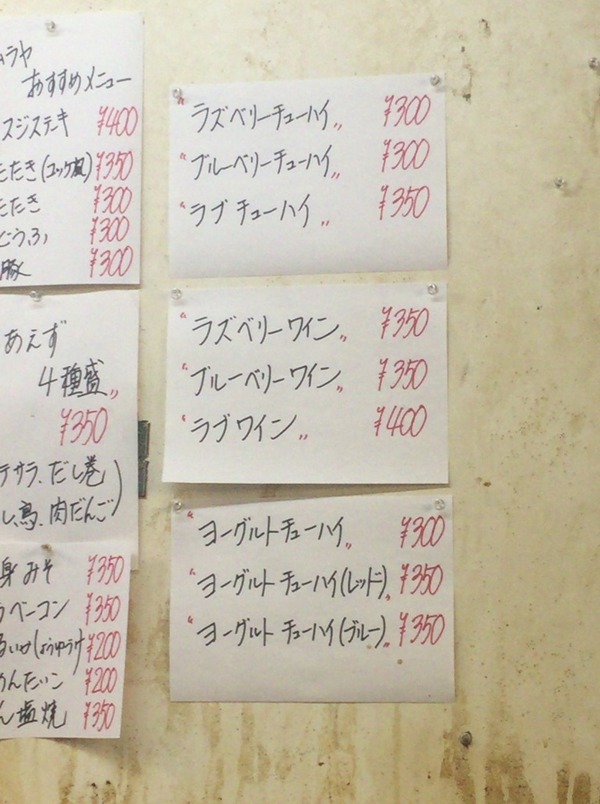 ムラヤ
おすすめメニュー
スジステーキ ¥400
たたき(コッケ風) ¥350
たたき ¥300
どうふ ¥300
豚 ¥300
あえず
4種盛〃
¥350
テサラ、だし巻
し鳥、肉だんご)
身みそ ¥350
ベーコン ¥350
るいか(しょうゆづけ ¥200
めんたいこ ¥200
ん塩焼 ¥350
〝ラズベリーチューハイ〃 ¥300
〝ブルーベリーチューハイ〃 ¥300
〝ラブチューハイ〃 ¥350
〝ラズベリーワイン〃 ¥350
〝ブルーベリーワイン〃 ¥350
〝ラブワイン〃 ¥400
〝ヨーグルトチューハイ〃 ¥300
〝ヨーグルトチューハイ(レッド)〃 ¥350
〝ヨーグルトチューハイ(ブルー)〃 ¥350